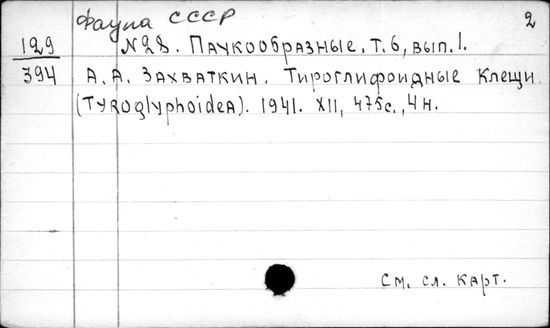 Фауна СССР
2
129 №28. Паукообразные, т.6, вып.1.
394 А. А. Захваткин. Тироглифоидные клещи
(Tyroglyphoidea). 1941. XII, 475с., 4н.
См. сл. карт.